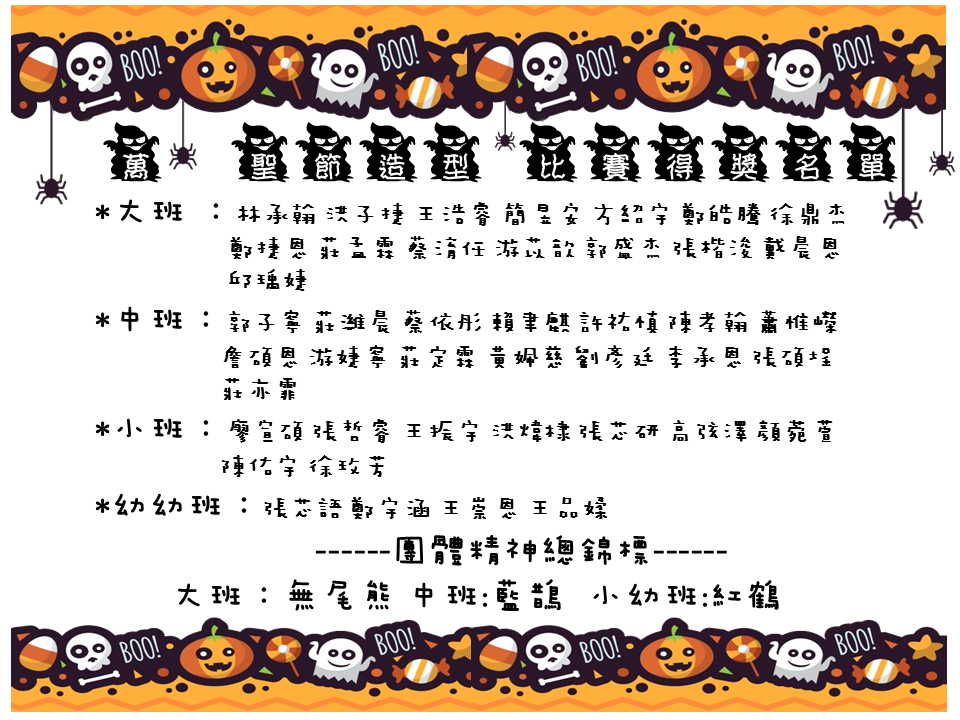 BOO! BOO! BOO! BOO!
萬 聖節造型 比賽得獎名單
*大班：林承翰 洪子捷 王浩睿 簡昱安 方紹宇 鄭皓騰 徐鼎杰
鄭捷恩 莊孟霖 蔡淯任 游苡歆 郭盛杰 張楷浚 戴晨恩
邱瑀婕
*中班：郭子寧 莊濰晨 蔡依彤 賴聿麒 許祐慎 陳孝翰 蕭惟嶸
詹碩恩 游婕寧 莊定霖 黃姵慈 劉彥廷 李承恩 張碩埕
莊亦霏
*小班：廖宣碩 張哲睿 王振宇 洪煒棣 張芯研 高弦澤 顏菀萱
陳佑宇 徐玫芳
*幼幼班：張芯語 鄭宇涵 王崇恩 王品媃
------團體精神總錦標------
大班：無尾熊 中班:藍鵲 小幼班:紅鶴
BOO! BOO! BOO! BOO!